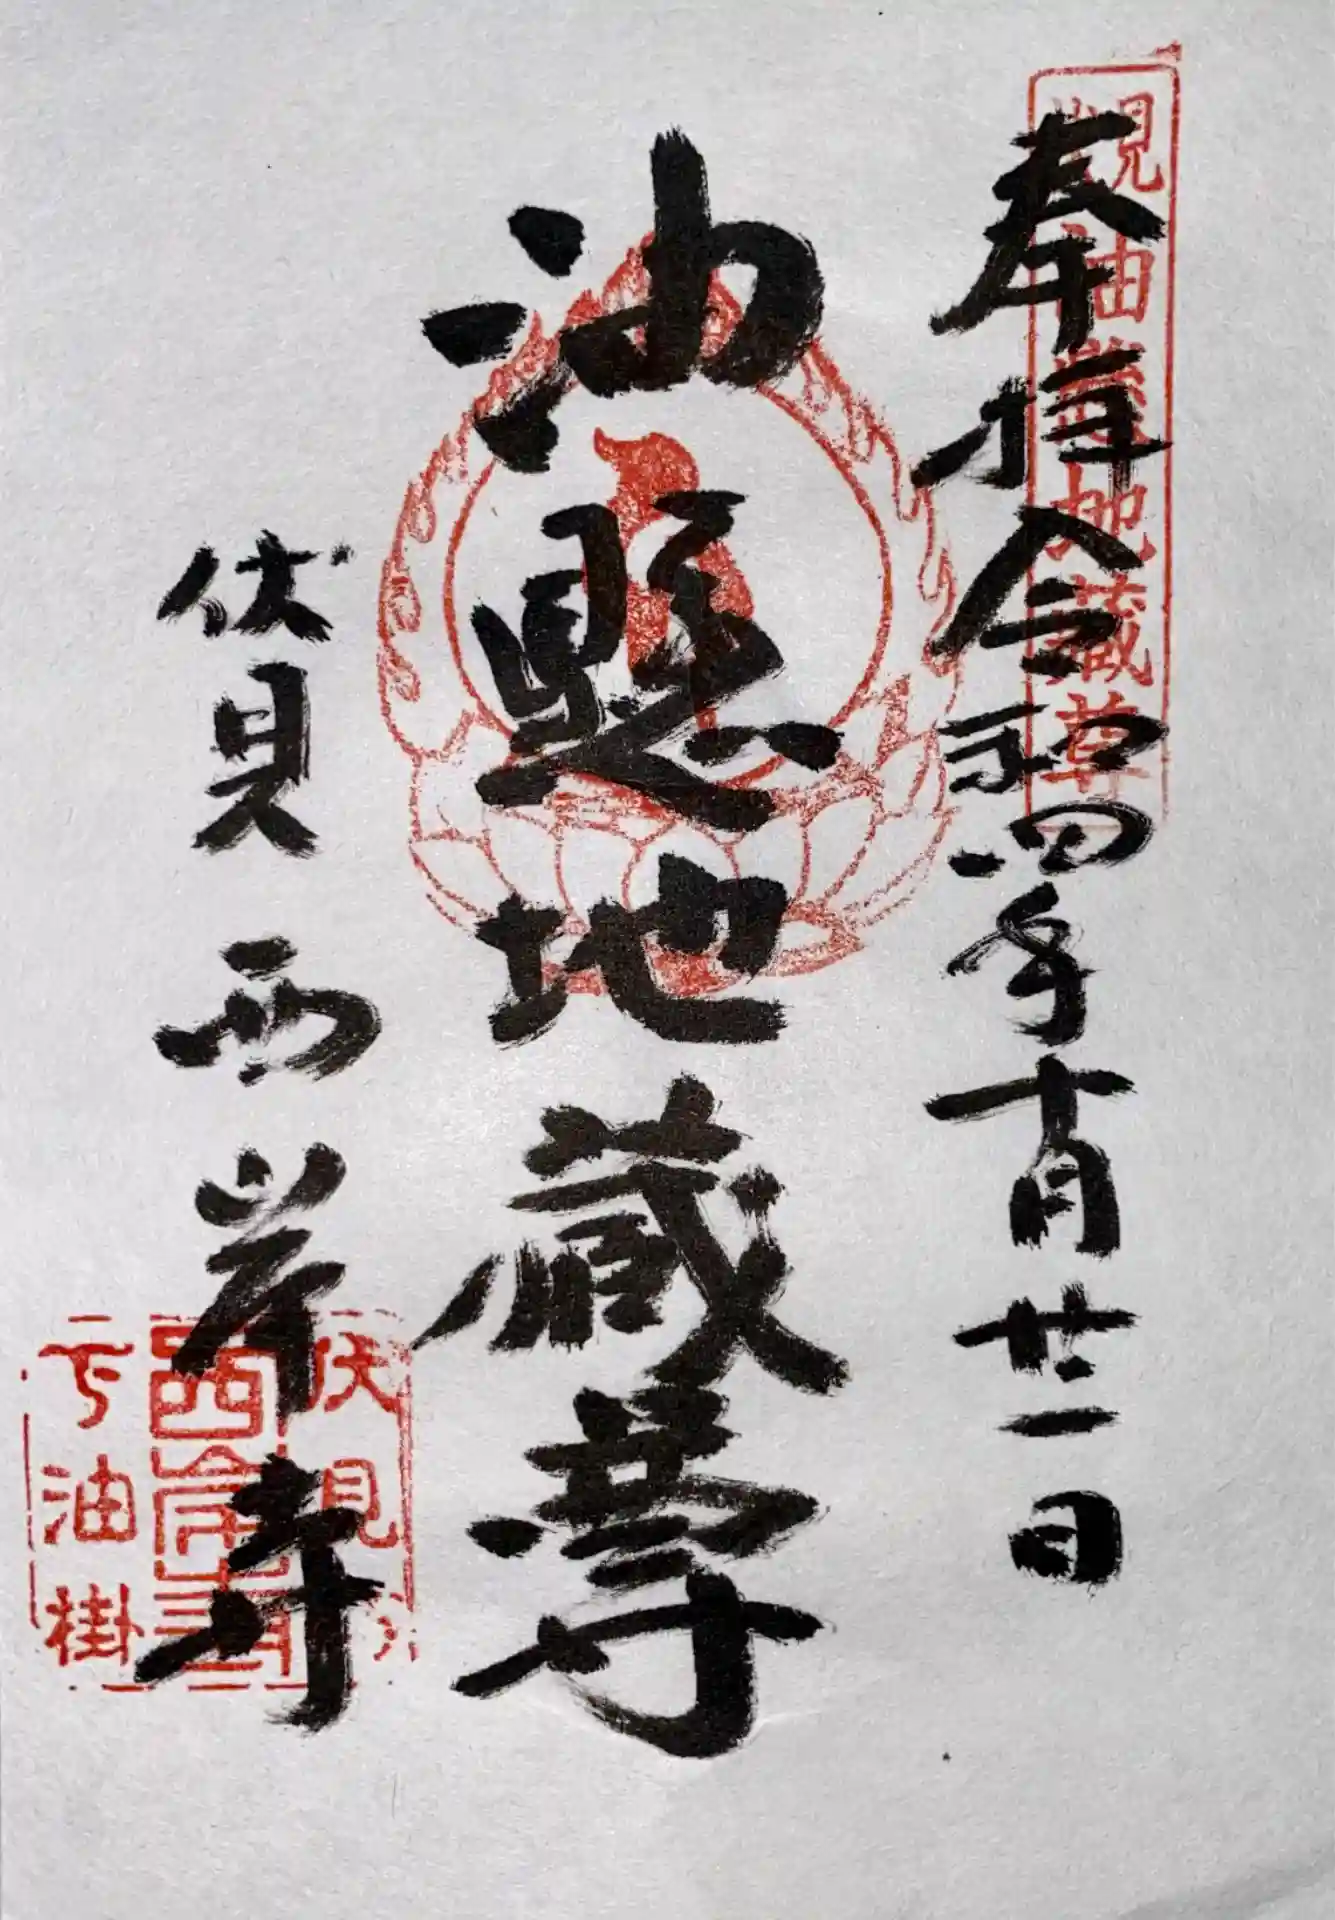 奉拝令和四年十月廿一日
油懸地蔵尊
伏見西岸寺
油懸地蔵尊
伏見
西岸寺
油掛